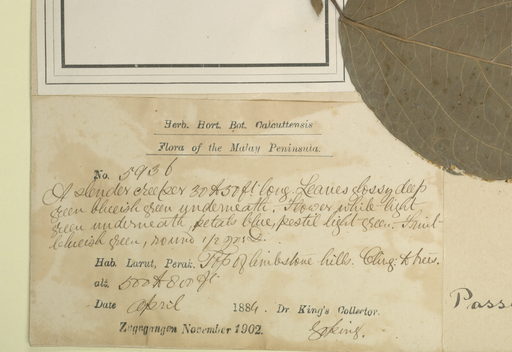 Herb. Hort. Bot. Calcuttensis
Flora of the Malay Peninsula.
No. 5936
A slender creeper 30 to 50 ft long. Leaves glossy deep
green blueish green underneath. Flower white light
green underneath, petals blue, pestil light green. Fruit
blueish green, round 1/2
Hab. Larut, Perak. Top of limbstone hills. Clng. to trees.
alt. 500 to 800 ft
Date April 1884. Dr King's Collector.
Zugegangen November 1902.